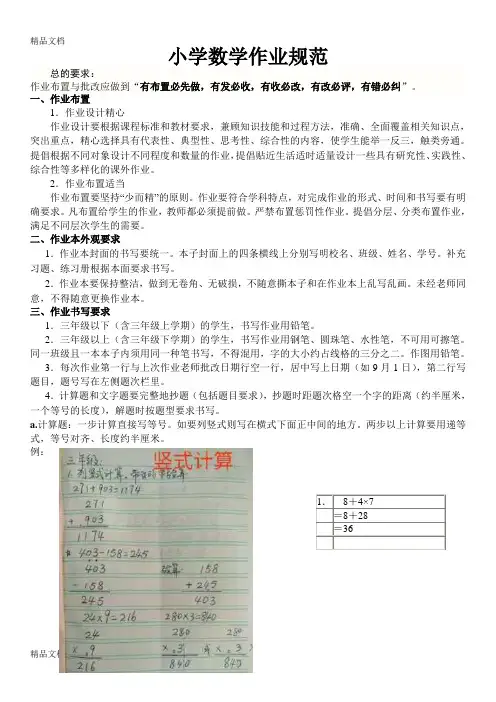 精品文档
小学数学作业规范
总的要求：
作业布置与批改应做到“有布置必先做，有发必收，有收必改，有改必评，有错必纠”。
一、作业布置
1．作业设计精心
作业设计要根据课程标准和教材要求，兼顾知识技能和过程方法，准确、全面覆盖相关知识点，
突出重点，精心选择具有代表性、典型性、思考性、综合性的内容，使学生能举一反三，触类旁通。
提倡根据不同对象设计不同程度和数量的作业，提倡贴近生活适时适量设计一些具有研究性、实践性、
综合性等多样化的课外作业。
2．作业布置适当
作业布置要坚持“少而精”的原则。作业要符合学科特点，对完成作业的形式、时间和书写要有明
确要求。凡布置给学生的作业，教师都必须提前做。严禁布置惩罚性作业。提倡分层、分类布置作业，
满足不同层次学生的需要。
二、作业本外观要求
1．作业本封面的书写要统一。本子封面上的四条横线上分别写明校名、班级、姓名、学号。补充
习题、练习册根据本面要求书写。
2．作业本要保持整洁，做到无卷角、无破损，不随意撕本子和在作业本上乱写乱画。未经老师同
意，不得随意更换作业本。
三、作业书写要求
1．三年级以下（含三年级上学期）的学生，书写作业用铅笔。
2．三年级以上（含三年级下学期）的学生，书写作业用钢笔、圆珠笔、水性笔，不可用可擦笔。
同一班级且一本本子内须用同一种笔书写，不得混用，字的大小约占线格的三分之二。作图用铅笔。
3．每次作业第一行与上次作业老师批改日期行空一行，居中写上日期（如 9 月 1 日），第二行写
题目，题号写在左侧题次栏里。
4．计算题和文字题要完整地抄题（包括题目要求），抄题时距题次格空一个字的距离（约半厘米，
一个等号的长度），解题时按题型要求书写。
a.计算题：一步计算直接写等号。如要列竖式则写在横式下面正中间的地方。两步以上计算要用递等
式，等号对齐、长度约半厘米。
例：
三年级：
竖式计算
271+903=1174
271
+ 903
1174
403-158=245
403 验算： 158
- 158 + 245
245 403
24×9=216 280×3=840
24 280 280
× 9 × 3 或 × 3
216 840 840
1． 8＋4×7
＝8＋28
＝36
精品文档